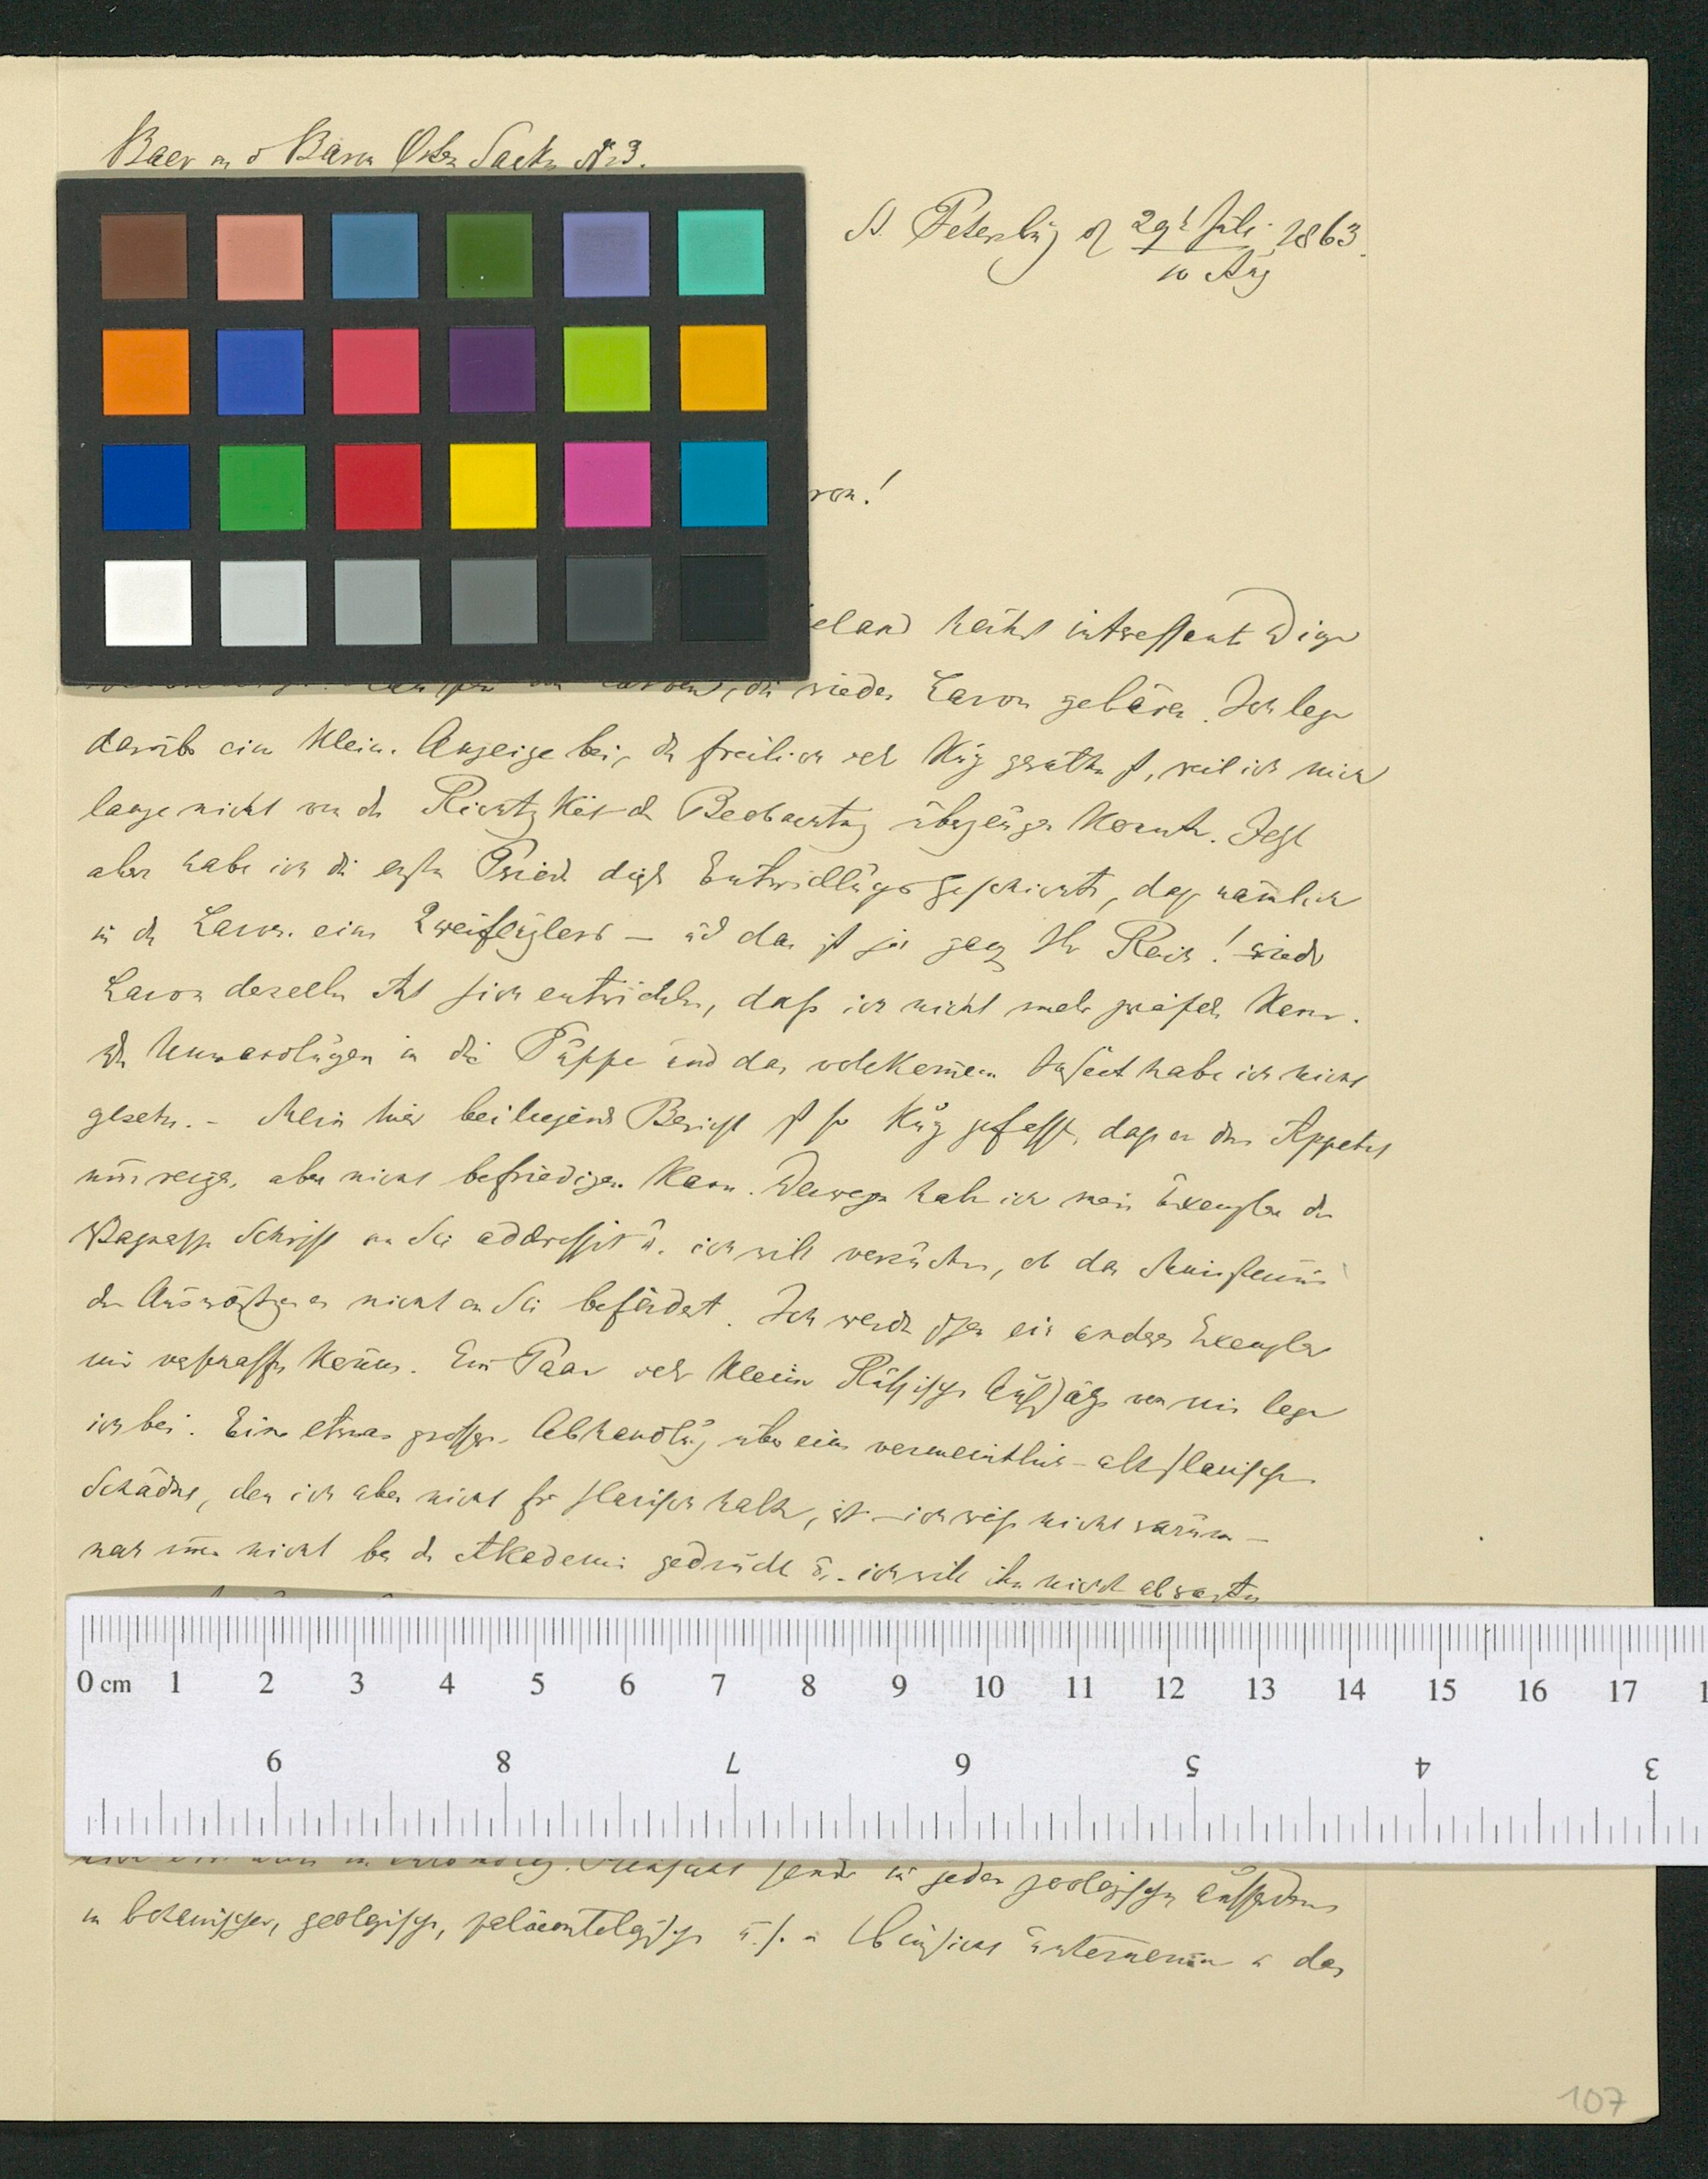 Baer an d Baron Osten Sacken № 3.
St. Petersburg d 29t Juli 1863.
10 Aug
ron!
eland höchst interessante Dinge
die wieder Larven gebären. Ich lege
darüber eine kleine Anzeige bei, die freilich sehr kurz gerathen ist, weil ich mich
lange nicht von der Richtigkeit der Beobachtung überzeugen konnte. Jetzt
aber habe ich die erste Periode dieser Entwicklungsgeschichte, dass nämlich
in der Larve eines Zweiflüglers – und das ist ja ganz Ihr Reich! wieder
Larven derselben Art sich entwickeln, dass ich nicht mehr zweifeln kann.
Die Umwandlungen in die Puppe und das vollkommene Insect habe ich nicht
gesehen. – Mein hier beiliegender Bericht ist so kurz gefasst, dass er den Appetit
nur reizen, aber nicht befriedigen kann. Deswegen habe ich mein Exemplar der
Wagnerschen Schrift an Sie addressirt u. ich will versuchen, ob das Ministerium
der Auswärtigen es nicht an Sie befördert. Ich werde schon ein anderes Exemplar
mir verschaffen können. Ein Paar sehr kleine Russische Aufsätze von mir lege
ich bei. Eine etwas grössere Abhandlung über einen vermeintlich-altslavischen
Schädel, den ich aber nicht für slavisch halte, ist – ich weiss nicht warum –
noch immer nicht bei der Akademie gedruckt u. ich will ihn nicht abwarten
sende in jeder zoologischen
in botanischer, geologischer, paläontologischer u. s. w. Hinsicht unternommen u das
0 cm 1 2 3 4 5 6 7 8 9 10 11 12 13 14 15 16 17 1
9 8 7 6 5 4 3
107